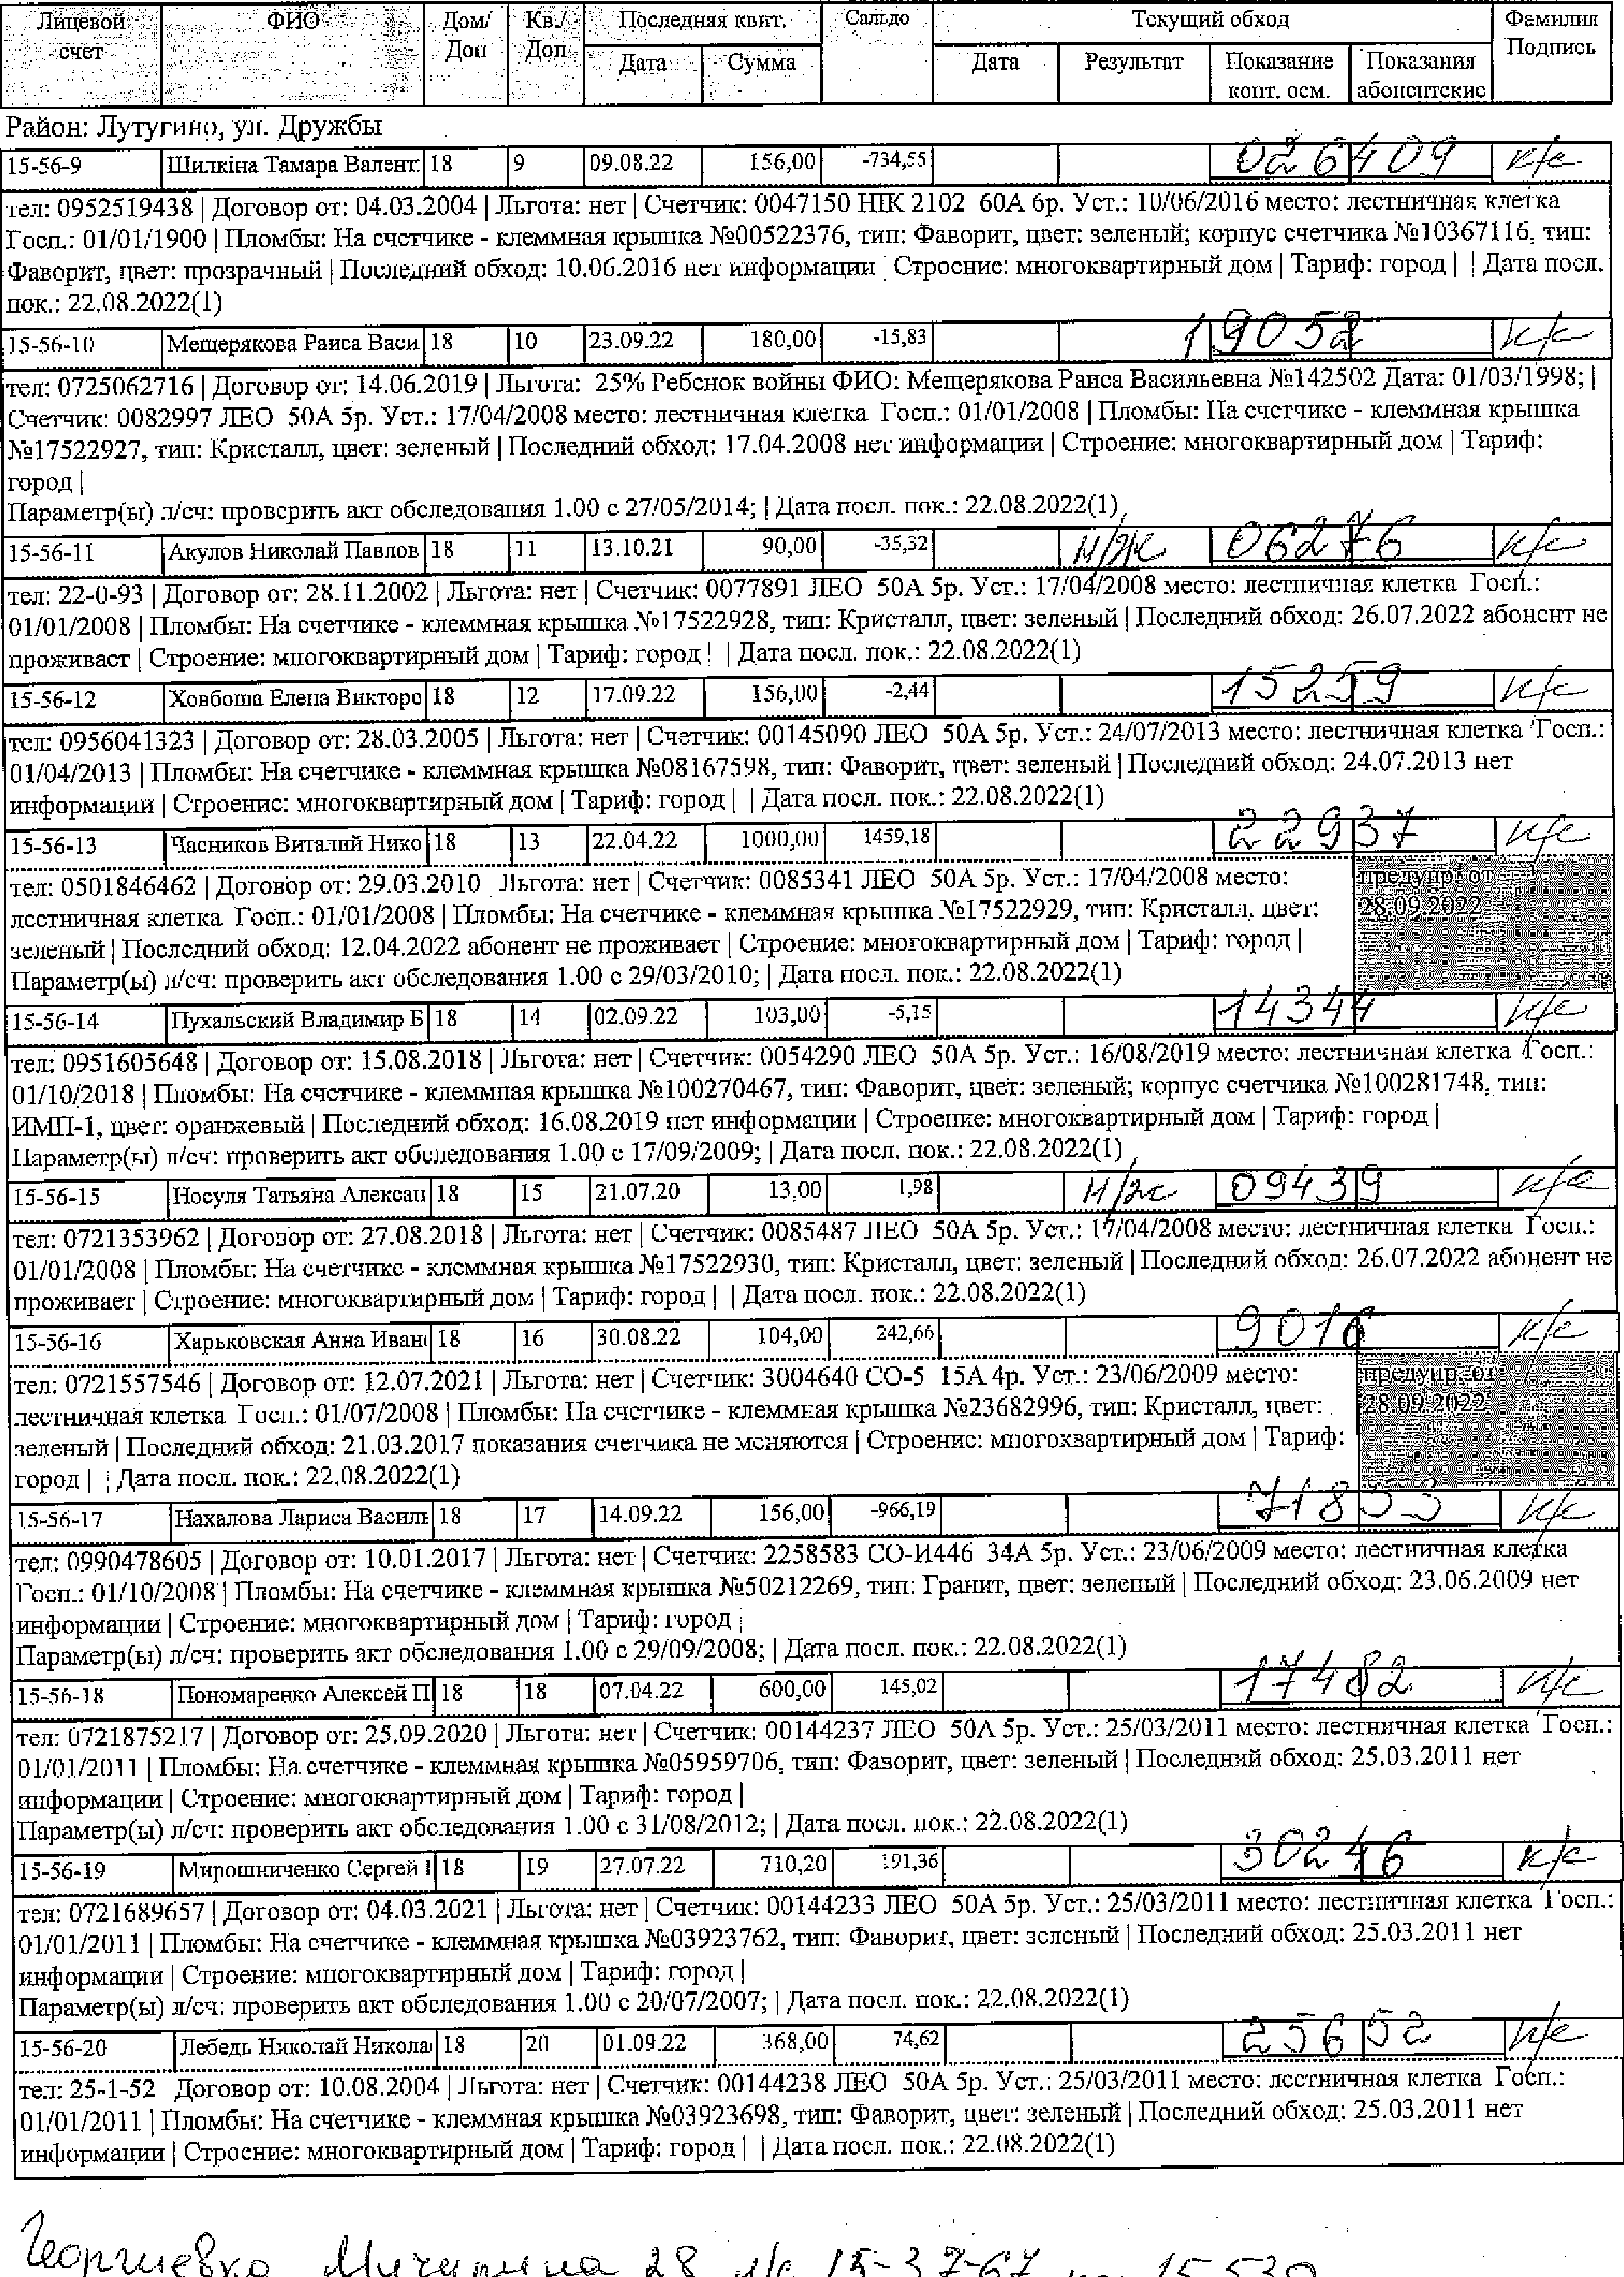 Лицевой счет | ФИО | Дом/Доп | Кв./Доп | Последняя квит. | Сальдо | Текущий обход | Фамилия Подпись
Дата | Сумма | Дата | Результат | Показание конт. осм. | Показания абонентские
Район: Лутугино, ул. Дружбы
15-56-9 | Шилкіна Тамара Валент. | 18 | 9 | 09.08.22 | 156,00 | -734,55 | 026409 | к/с
тел: 0952519438 | Договор от: 04.03.2004 | Льгота: нет | Счетчик: 0047150 НІК 2102 60А 6р. Уст.: 10/06/2016 место: лестничная клетка
Госп.: 01/01/1900 | Пломбы: На счетчике - клеммная крышка №00522376, тип: Фаворит, цвет: зеленый; корпус счетчика №10367116, тип:
Фаворит, цвет: прозрачный | Последний обход: 10.06.2016 нет информации | Строение: многоквартирный дом | Тариф: город | | Дата посл.
пок.: 22.08.2022(1)
15-56-10 | Мещерякова Раиса Васи | 18 | 10 | 23.09.22 | 180,00 | -15,83 | 19052 | к/с
тел: 0725062716 | Договор от: 14.06.2019 | Льгота: 25% Ребенок войны ФИО: Мещерякова Раиса Васильевна №142502 Дата: 01/03/1998; |
Счетчик: 0082997 ЛЕО 50А 5р. Уст.: 17/04/2008 место: лестничная клетка Госп.: 01/01/2008 | Пломбы: На счетчике - клеммная крышка
№17522927, тип: Кристалл, цвет: зеленый | Последний обход: 17.04.2008 нет информации | Строение: многоквартирный дом | Тариф:
город |
Параметр(ы) л/сч: проверить акт обследования 1.00 с 27/05/2014; | Дата посл. пок.: 22.08.2022(1)
15-56-11 | Акулов Николай Павлов | 18 | 11 | 13.10.21 | 90,00 | -35,32 | н/ж | 06276 | к/с
тел: 22-0-93 | Договор от: 28.11.2002 | Льгота: нет | Счетчик: 0077891 ЛЕО 50А 5р. Уст.: 17/04/2008 место: лестничная клетка Госп.:
01/01/2008 | Пломбы: На счетчике - клеммная крышка №17522928, тип: Кристалл, цвет: зеленый | Последний обход: 26.07.2022 абонент не
проживает | Строение: многоквартирный дом | Тариф: город | | Дата посл. пок.: 22.08.2022(1)
15-56-12 | Ховбоша Елена Викторо | 18 | 12 | 17.09.22 | 156,00 | -2,44 | 15259 | к/с
тел: 0956041323 | Договор от: 28.03.2005 | Льгота: нет | Счетчик: 00145090 ЛЕО 50А 5р. Уст.: 24/07/2013 место: лестничная клетка Госп.:
01/04/2013 | Пломбы: На счетчике - клеммная крышка №08167598, тип: Фаворит, цвет: зеленый | Последний обход: 24.07.2013 нет
информации | Строение: многоквартирный дом | Тариф: город | | Дата посл. пок.: 22.08.2022(1)
15-56-13 | Часников Виталий Нико | 18 | 13 | 22.04.22 | 1000,00 | 1459,18 | 22937 | к/с
тел: 0501846462 | Договор от: 29.03.2010 | Льгота: нет | Счетчик: 0085341 ЛЕО 50А 5р. Уст.: 17/04/2008 место: | предупр. от
лестничная клетка Госп.: 01/01/2008 | Пломбы: На счетчике - клеммная крышка №17522929, тип: Кристалл, цвет: | 28.09.2022
зеленый | Последний обход: 12.04.2022 абонент не проживает | Строение: многоквартирный дом | Тариф: город |
Параметр(ы) л/сч: проверить акт обследования 1.00 с 29/03/2010; | Дата посл. пок.: 22.08.2022(1)
15-56-14 | Пухальский Владимир Б | 18 | 14 | 02.09.22 | 103,00 | -5,15 | 14344 | к/с
тел: 0951605648 | Договор от: 15.08.2018 | Льгота: нет | Счетчик: 0054290 ЛЕО 50А 5р. Уст.: 16/08/2019 место: лестничная клетка Госп.:
01/10/2018 | Пломбы: На счетчике - клеммная крышка №100270467, тип: Фаворит, цвет: зеленый; корпус счетчика №100281748, тип:
ИМП-1, цвет: оранжевый | Последний обход: 16.08.2019 нет информации | Строение: многоквартирный дом | Тариф: город |
Параметр(ы) л/сч: проверить акт обследования 1.00 с 17/09/2009; | Дата посл. пок.: 22.08.2022(1)
15-56-15 | Носуля Татьяна Алексан | 18 | 15 | 21.07.20 | 13,00 | 1,98 | н/ж | 09439 | к/с
тел: 0721353962 | Договор от: 27.08.2018 | Льгота: нет | Счетчик: 0085487 ЛЕО 50А 5р. Уст.: 17/04/2008 место: лестничная клетка Госп.:
01/01/2008 | Пломбы: На счетчике - клеммная крышка №17522930, тип: Кристалл, цвет: зеленый | Последний обход: 26.07.2022 абонент не
проживает | Строение: многоквартирный дом | Тариф: город | | Дата посл. пок.: 22.08.2022(1)
15-56-16 | Харьковская Анна Иван | 18 | 16 | 30.08.22 | 104,00 | 242,66 | 9016 | к/с
тел: 0721557546 | Договор от: 12.07.2021 | Льгота: нет | Счетчик: 3004640 СО-5 15А 4р. Уст.: 23/06/2009 место: | предупр. от
лестничная клетка Госп.: 01/07/2008 | Пломбы: На счетчике - клеммная крышка №23682996, тип: Кристалл, цвет: | 28.09.2022
зеленый | Последний обход: 21.03.2017 показания счетчика не меняются | Строение: многоквартирный дом | Тариф:
город | | Дата посл. пок.: 22.08.2022(1)
15-56-17 | Нахалова Лариса Василь | 18 | 17 | 14.09.22 | 156,00 | -966,19 | 71853 | к/с
тел: 0990478605 | Договор от: 10.01.2017 | Льгота: нет | Счетчик: 2258583 СО-И446 34А 5р. Уст.: 23/06/2009 место: лестничная клетка
Госп.: 01/10/2008 | Пломбы: На счетчике - клеммная крышка №50212269, тип: Гранит, цвет: зеленый | Последний обход: 23.06.2009 нет
информации | Строение: многоквартирный дом | Тариф: город |
Параметр(ы) л/сч: проверить акт обследования 1.00 с 29/09/2008; | Дата посл. пок.: 22.08.2022(1)
15-56-18 | Пономаренко Алексей П | 18 | 18 | 07.04.22 | 600,00 | 145,02 | 17482 | к/с
тел: 0721875217 | Договор от: 25.09.2020 | Льгота: нет | Счетчик: 00144237 ЛЕО 50А 5р. Уст.: 25/03/2011 место: лестничная клетка Госп.:
01/01/2011 | Пломбы: На счетчике - клеммная крышка №05959706, тип: Фаворит, цвет: зеленый | Последний обход: 25.03.2011 нет
информации | Строение: многоквартирный дом | Тариф: город |
Параметр(ы) л/сч: проверить акт обследования 1.00 с 31/08/2012; | Дата посл. пок.: 22.08.2022(1)
15-56-19 | Мирошниченко Сергей | 18 | 19 | 27.07.22 | 710,20 | 191,36 | 30246 | к/с
тел: 0721689657 | Договор от: 04.03.2021 | Льгота: нет | Счетчик: 00144233 ЛЕО 50А 5р. Уст.: 25/03/2011 место: лестничная клетка Госп.:
01/01/2011 | Пломбы: На счетчике - клеммная крышка №03923762, тип: Фаворит, цвет: зеленый | Последний обход: 25.03.2011 нет
информации | Строение: многоквартирный дом | Тариф: город |
Параметр(ы) л/сч: проверить акт обследования 1.00 с 20/07/2007; | Дата посл. пок.: 22.08.2022(1)
15-56-20 | Лебедь Николай Никола | 18 | 20 | 01.09.22 | 368,00 | 74,62 | 25652 | к/с
тел: 25-1-52 | Договор от: 10.08.2004 | Льгота: нет | Счетчик: 00144238 ЛЕО 50А 5р. Уст.: 25/03/2011 место: лестничная клетка Госп.:
01/01/2011 | Пломбы: На счетчике - клеммная крышка №03923698, тип: Фаворит, цвет: зеленый | Последний обход: 25.03.2011 нет
информации | Строение: многоквартирный дом | Тариф: город | | Дата посл. пок.: 22.08.2022(1)
Георгиевка Мичурина 28 л/с 15-37-67 15530